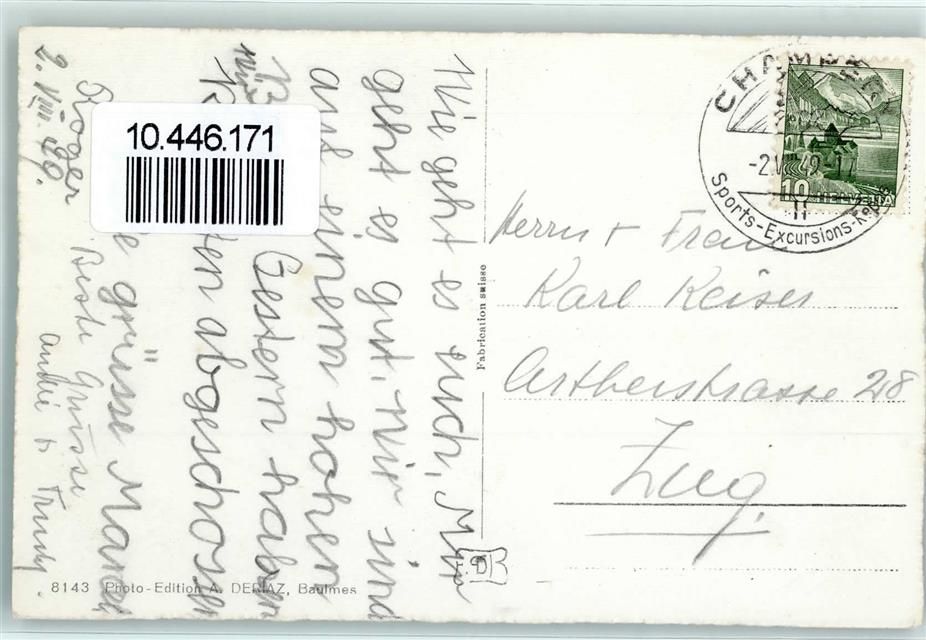 Wie geht es euch, Mir
geht es gut. Wir sind
auf einem hohen
Gestern haben
wir
abgeschossen
grüsse Marcel
Roger
Beste Grüsse
André + Trudy
2. VIII. 49.
10.446.171
CHAMPÉRY
-2.VIII 49-17
Sports-Excursions-Repos
10 HELVETIA
Herrn + Frau
Karl Keiser
Artherstrasse 28
Zug
Fabrication suisse
8143 Photo-Edition A. DERIAZ, Baulmes